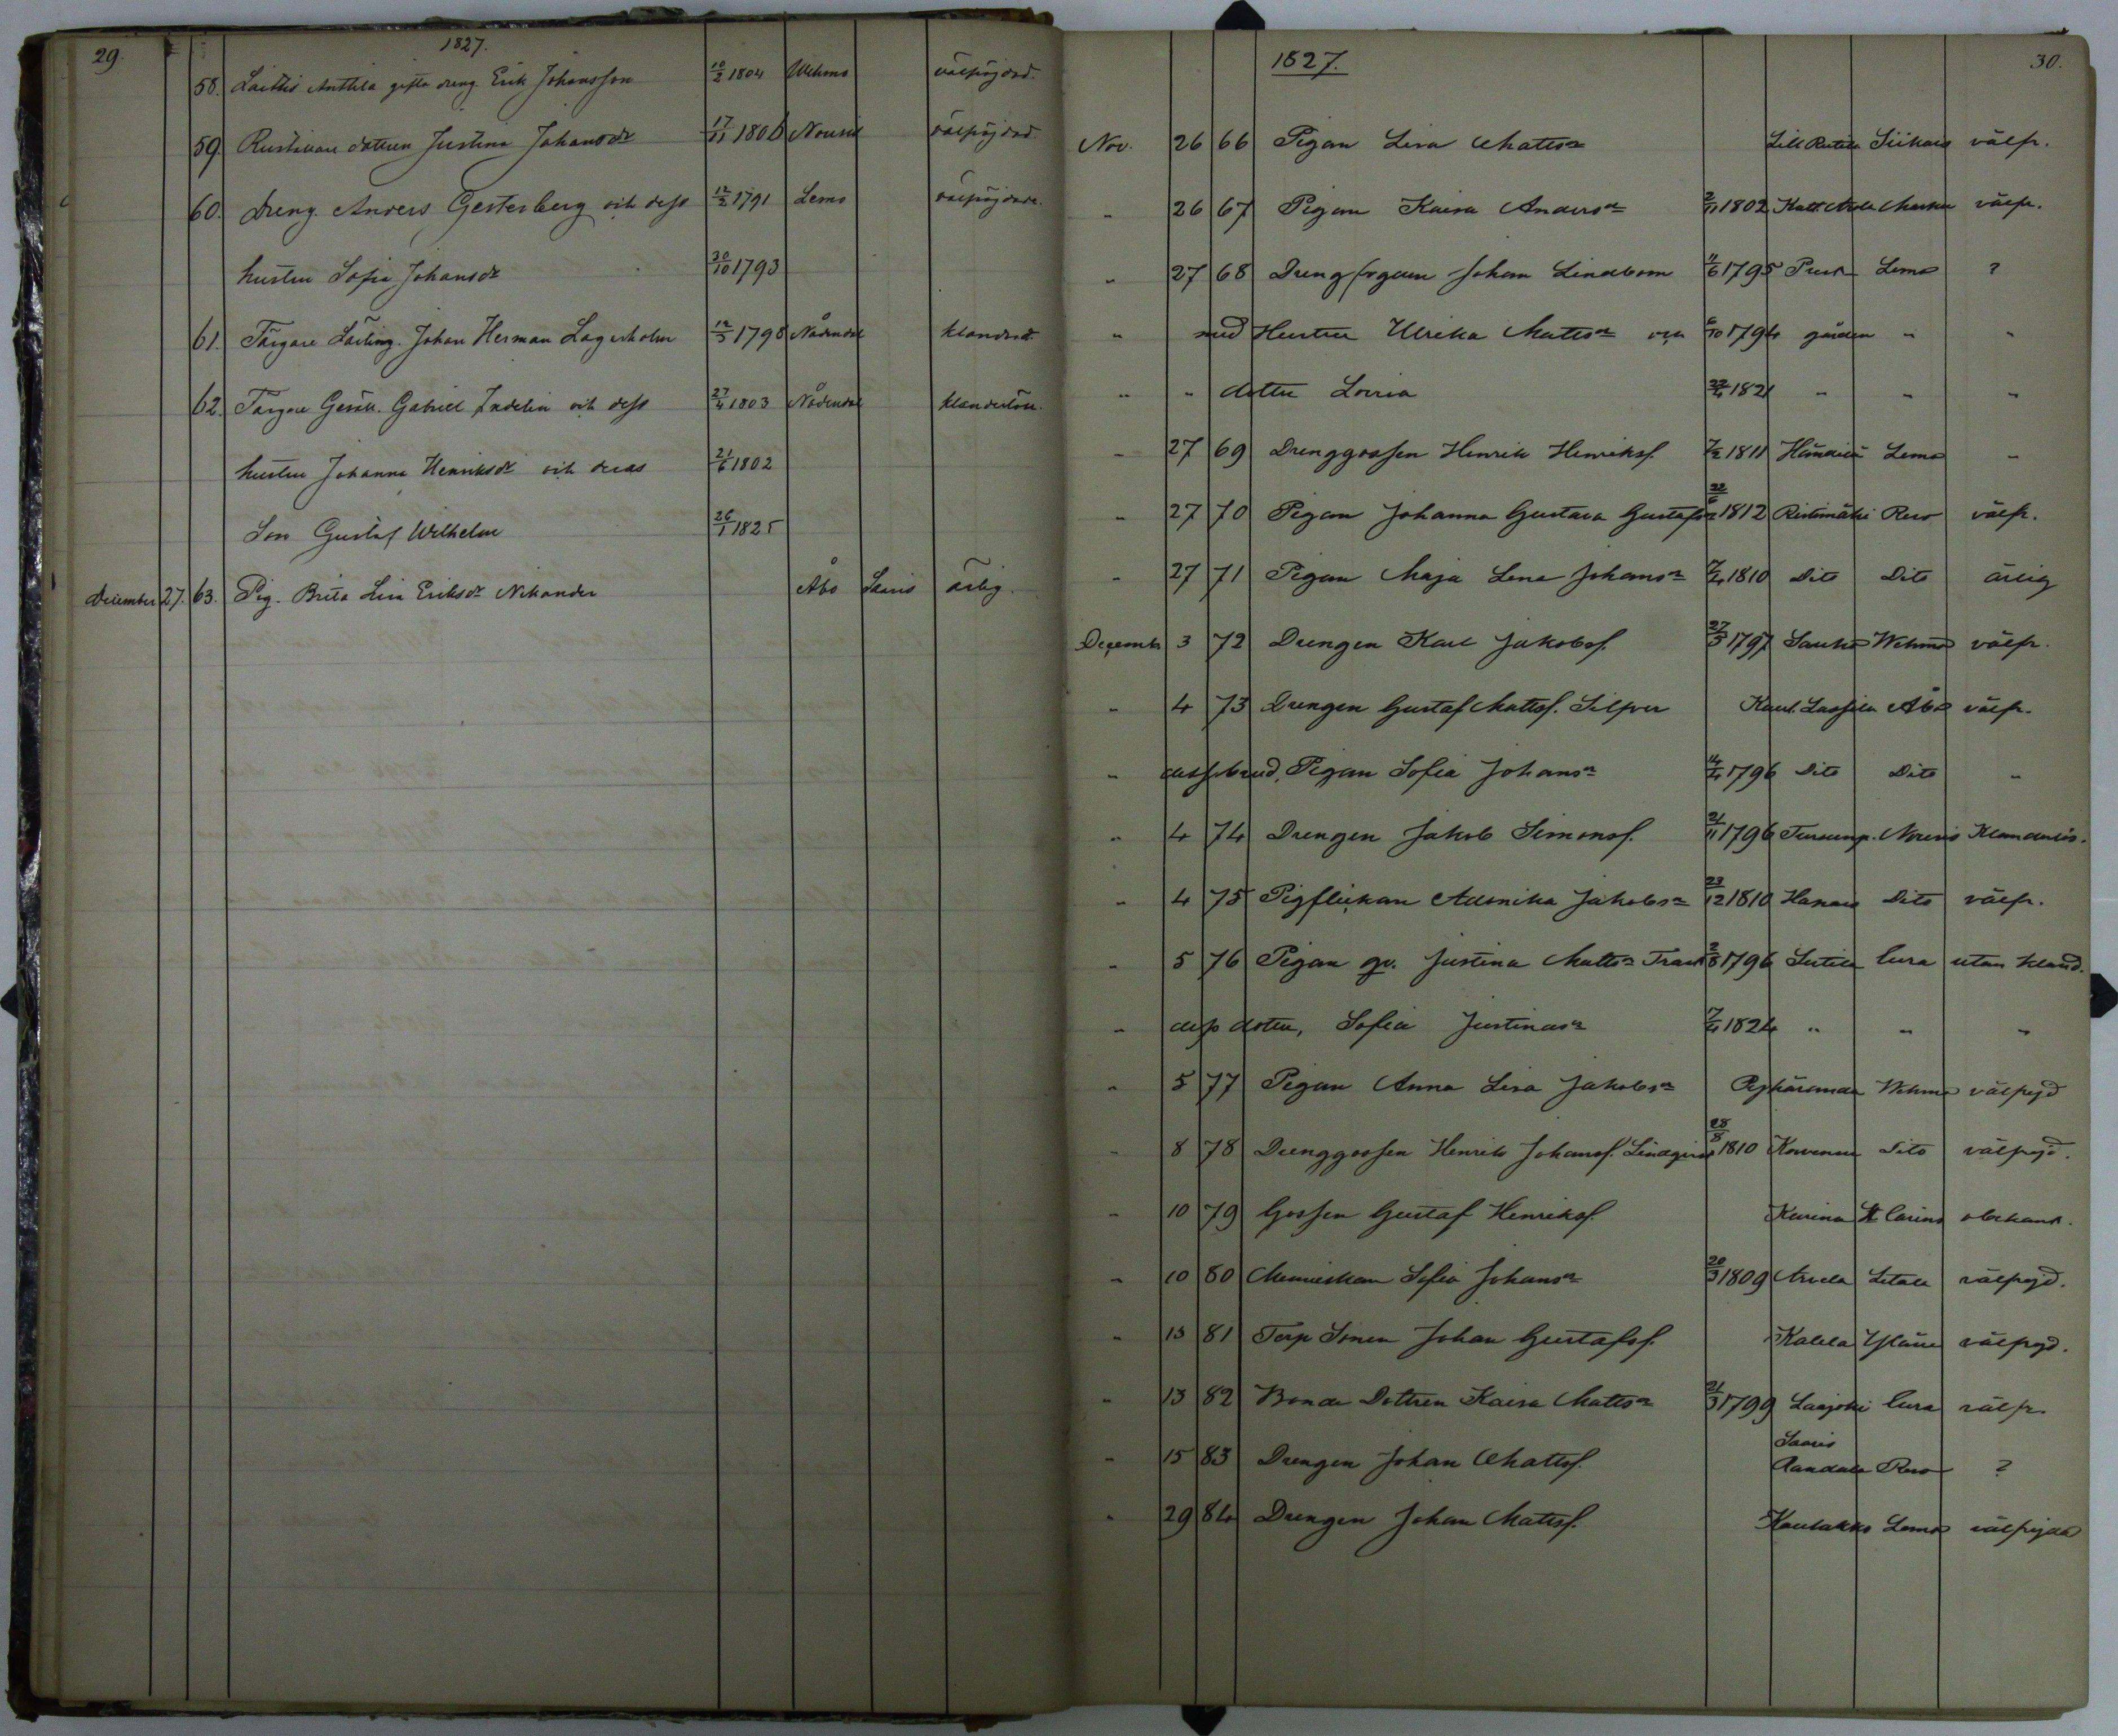 29.
1827.
58. Laitis Anttila gifta dreng. Erik Johansson 10/2 1804 Wehmo välfrejdad.
59. Rustivare dottren Justina Johansdr 17/11 1806 Nousis välfrejdad
60. Dreng. Anders Gesterberg och dess 12/2 1791 Lemo välfrejdade.
hustru Sofia Johansdr 30/10 1793
61. Färgare Lärling. Johan Herman Lagerholm 12/5 1798 Nådendal klanderfr.
62. Färgare Gesäll. Gabriel Indelin och dess 27/4 1803 Nådendal klanderlöse.
hustru Johanna Henriksdr och deras 21/6 1802
Son Gustaf Wilhelm 26/1 1825
December 27. 63. Pig. Brita Lisa Eriksdr Nikander Åbo Saaris ärlig.
1827.
30.
Nov. 26 66 Pigan Lisa Mattsdr Lill Rutila Siikais välfr.
" 26 67 Pigan Kaisa Andersdr 2/11 1802 Arvila Masku välfr.
" 27 68 Dreng Johan Lindbom 11/6 1795 Prest Lemo ?
" med Hustru Ulrika Mattsdr och 6/10 1794 gården " "
" " dotter Lovisa 22/4 1821 " " "
" 27 69 Drenggossen Henrik Henriksf. 7/2 1811 Lemo "
" 27 70 Pigan Johanna Gustava Gustafsdr 22/6 1812 Ristimäki Reso välfr.
" 27 71 Pigan Maja Lena Johansdr 7/4 1810 Dito Dito ärlig
December 3 72 Drengen Karl Jakobsf. 27/5 1797 Sauko Wehmo välfr.
" 4 73 Drengen Gustaf Mattsf. Silfver Kaul. Lassila Åbo välfr.
" dess brud, Pigan Sofia Johansdr 14/4 1796 Dito Dito "
" 4 74 Drengen Jakob Simonsf. 21/11 1796 Nousis Klanderlös.
" 4 75 Pigflickan Jakobsdr 23/12 1810 Dito välfr.
" 5 76 Pigan gv. Justina Mattsdr 2/8 1796 Eura utan kland.
" dess dotter, Sofia Justinasdr 7/4 1824 " " "
" 5 77 Pigan Anna Lisa Jakobsdr Wehmo välfrejd
" 8 78 Drenggossen Henrik Johansf. Lindqvist 28/8 1810 Dito välfrejd.
" 10 79 Gossen Gustaf Henriksf. Karina St Carins obekant.
" 10 80 Menniskan Sofia Johansdr 20/3 1809 Arvela Letala välfrejd.
" 13 81 Torp Sonen Johan Gustafsf. Kalela Yläne välfrejd.
" 13 82 Bonde Dottren Kaisa Mattsdr 21/3 1799 Laajoki Eura välfr.
" 15 83 Drengen Johan Mattsf. Saaris Randala Reso ?
" 29 84 Drengen Johan Mattsf. Koulakko Lemo välfrejdad